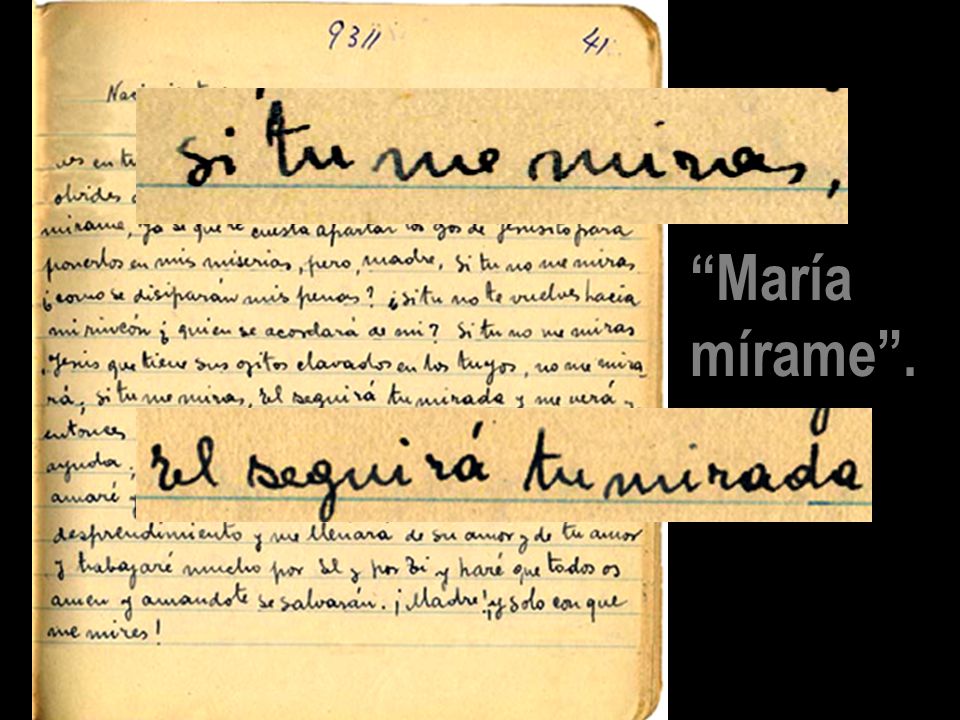 9311 41
si tu me miras,
ves en tu
olvides
mirame, Ya se que te cuesta apartar los ojos de Jesusito para
ponerlos en mis miserias, pero, madre, si tu no me miras
¿como se disiparán mis penas? ¿si tu no te vuelves hacia
mi rincón ¿ quien se acordará de mi? Si tu no me miras
Jesús que tiene sus ojitos clavados en los tuyos, no me mira-
rá, si tu me miras, El seguirá tu mirada y me verá y
entonces
El seguirá tu mirada
ayuda,
amaré
desprendimiento y me llenará de su amor y de tu amor
y trabajaré mucho por El y por Ti y haré que todos os
amen y amandote se salvarán. ¡Madre! ¡y solo con que
me mires!
“María
mírame”.